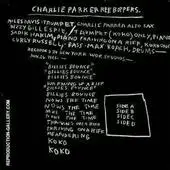 CHARLIE PARKER REE BOPPERS.
MILES DAVIS: TRUMPET, CHARLIE PARKER ALTO SAX
DIZZY GILLESPIE, TRUMPET (KOKO) ONLY, PIANO
SADIK HAKIM, PIANO THRIVING ON A RIFF, KOKO
CURLY RUSSELL: BASS. MAX ROACH, DRUMS
RECORDED IN NEW YORK STUDIOS
BILLIES BOUNCE
BILLIES BOUNCE
BILLIES BOUNCE
WARMING UP A RIFF
BILLIES BOUNCE
BILLIES BOUNCE
NOW'S THE TIME
NOW'S THE TIME
NOW'S THE TIME
NOW'S THE TIME
THRIVING ON A RIFF
THRIVING ON A RIFF
MEANDERING
KOKO
KOKO
SIDE A
SIDE B
SIDE C
SIDE D
REPRODUCTION-GALLERY.COM